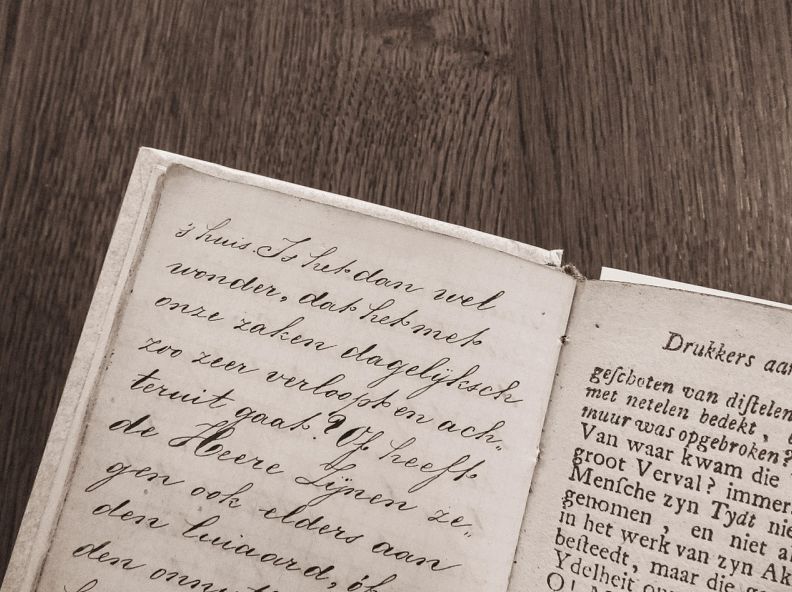 's huis. Is het dan wel
wonder, dat het met
onze zaken dagelijksch
zoo zeer verloopt en ach„
teruit gaat? Of heeft
de Heere Zijnen ze„
gen ook elders aan
den luiaard,
den
Drukkers aan
geſchoten van diſtelen
met netelen bedekt,
muur was opgebroken?
Van waar kwam die
groot Verval? immers
Menſche zyn Tydt
genomen, en niet
in het werk van zyn
beſteedt, maar die
Ydelheit
O!